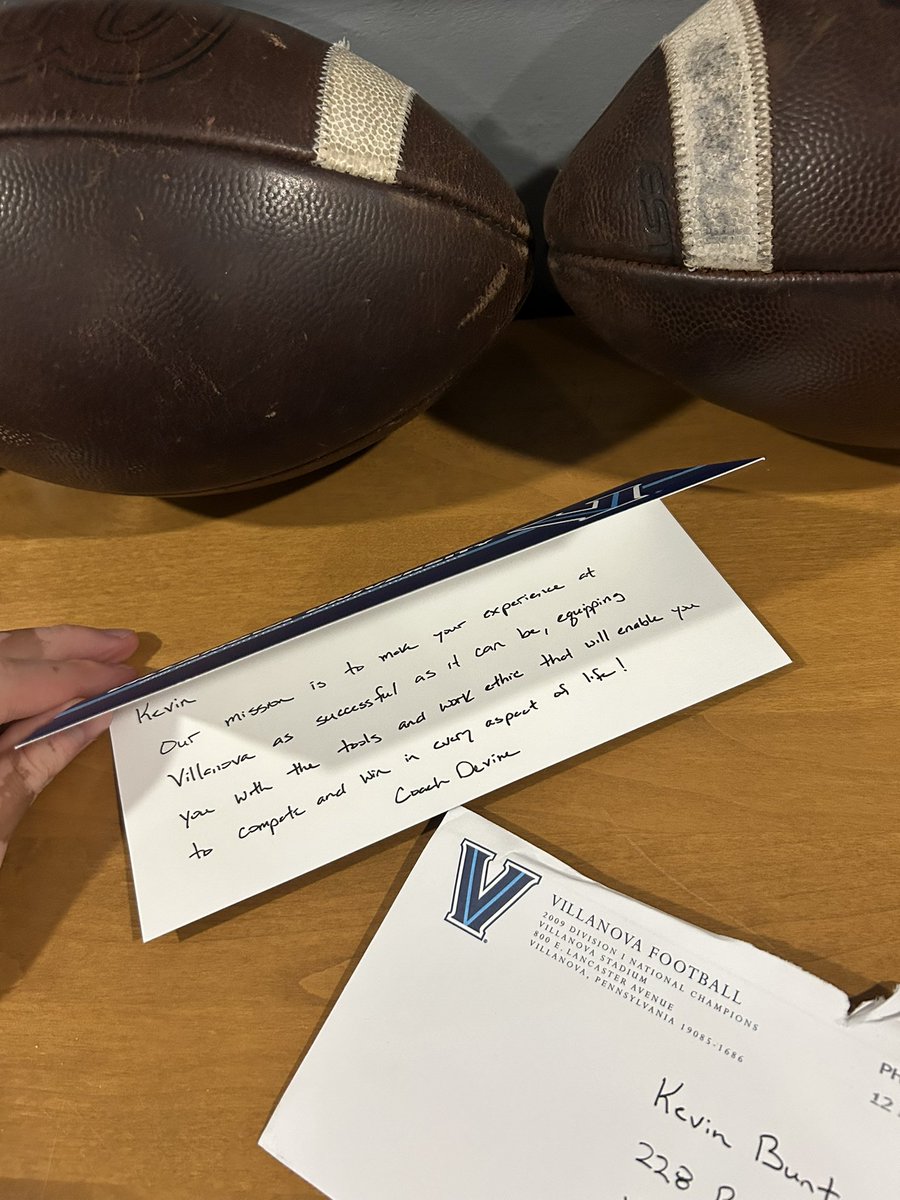 Kevin
Our mission is to make your experience at
Villanova as successful as it can be, equipping
you with the tools and work ethic that will enable you
to compete and win in every aspect of life!
Coach Devine
V
VILLANOVA FOOTBALL
2009 DIVISION I NATIONAL CHAMPIONS
VILLANOVA STADIUM
800 E. LANCASTER AVENUE
VILLANOVA, PENNSYLVANIA 19085-1686
PH
12
Kevin Bunt
228